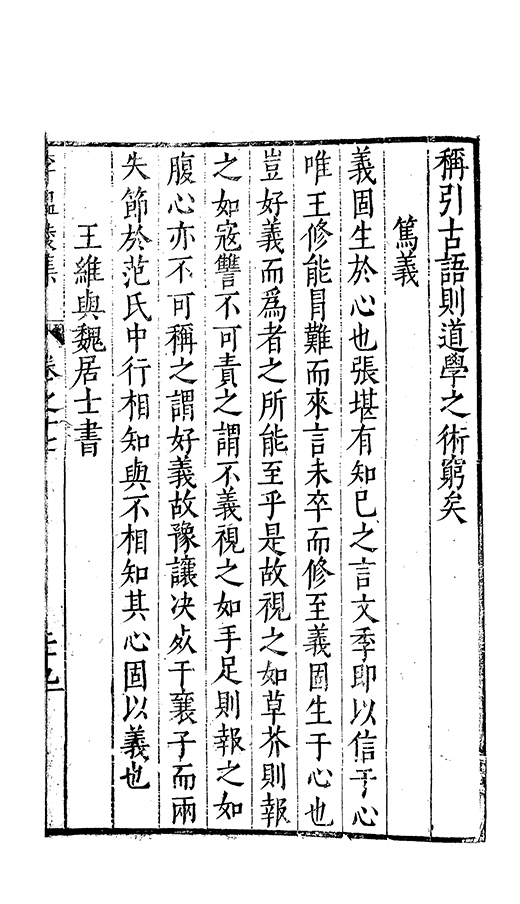 稱引古語則道學之術窮矣
篤義
義固生於心也張堪有知已之言文季即以信于心
唯王修能冐難而來言未卒而修至義固生于心也
豈好義而爲者之所能至乎是故視之如草芥則報
之如寇讐不可責之謂不義視之如手足則報之如
腹心亦不可稱之謂好義故豫讓决死于襄子而兩
失節於范氏中行相知與不相知其心固以義也
王維與魏居士書
李溫陵集
卷之十七